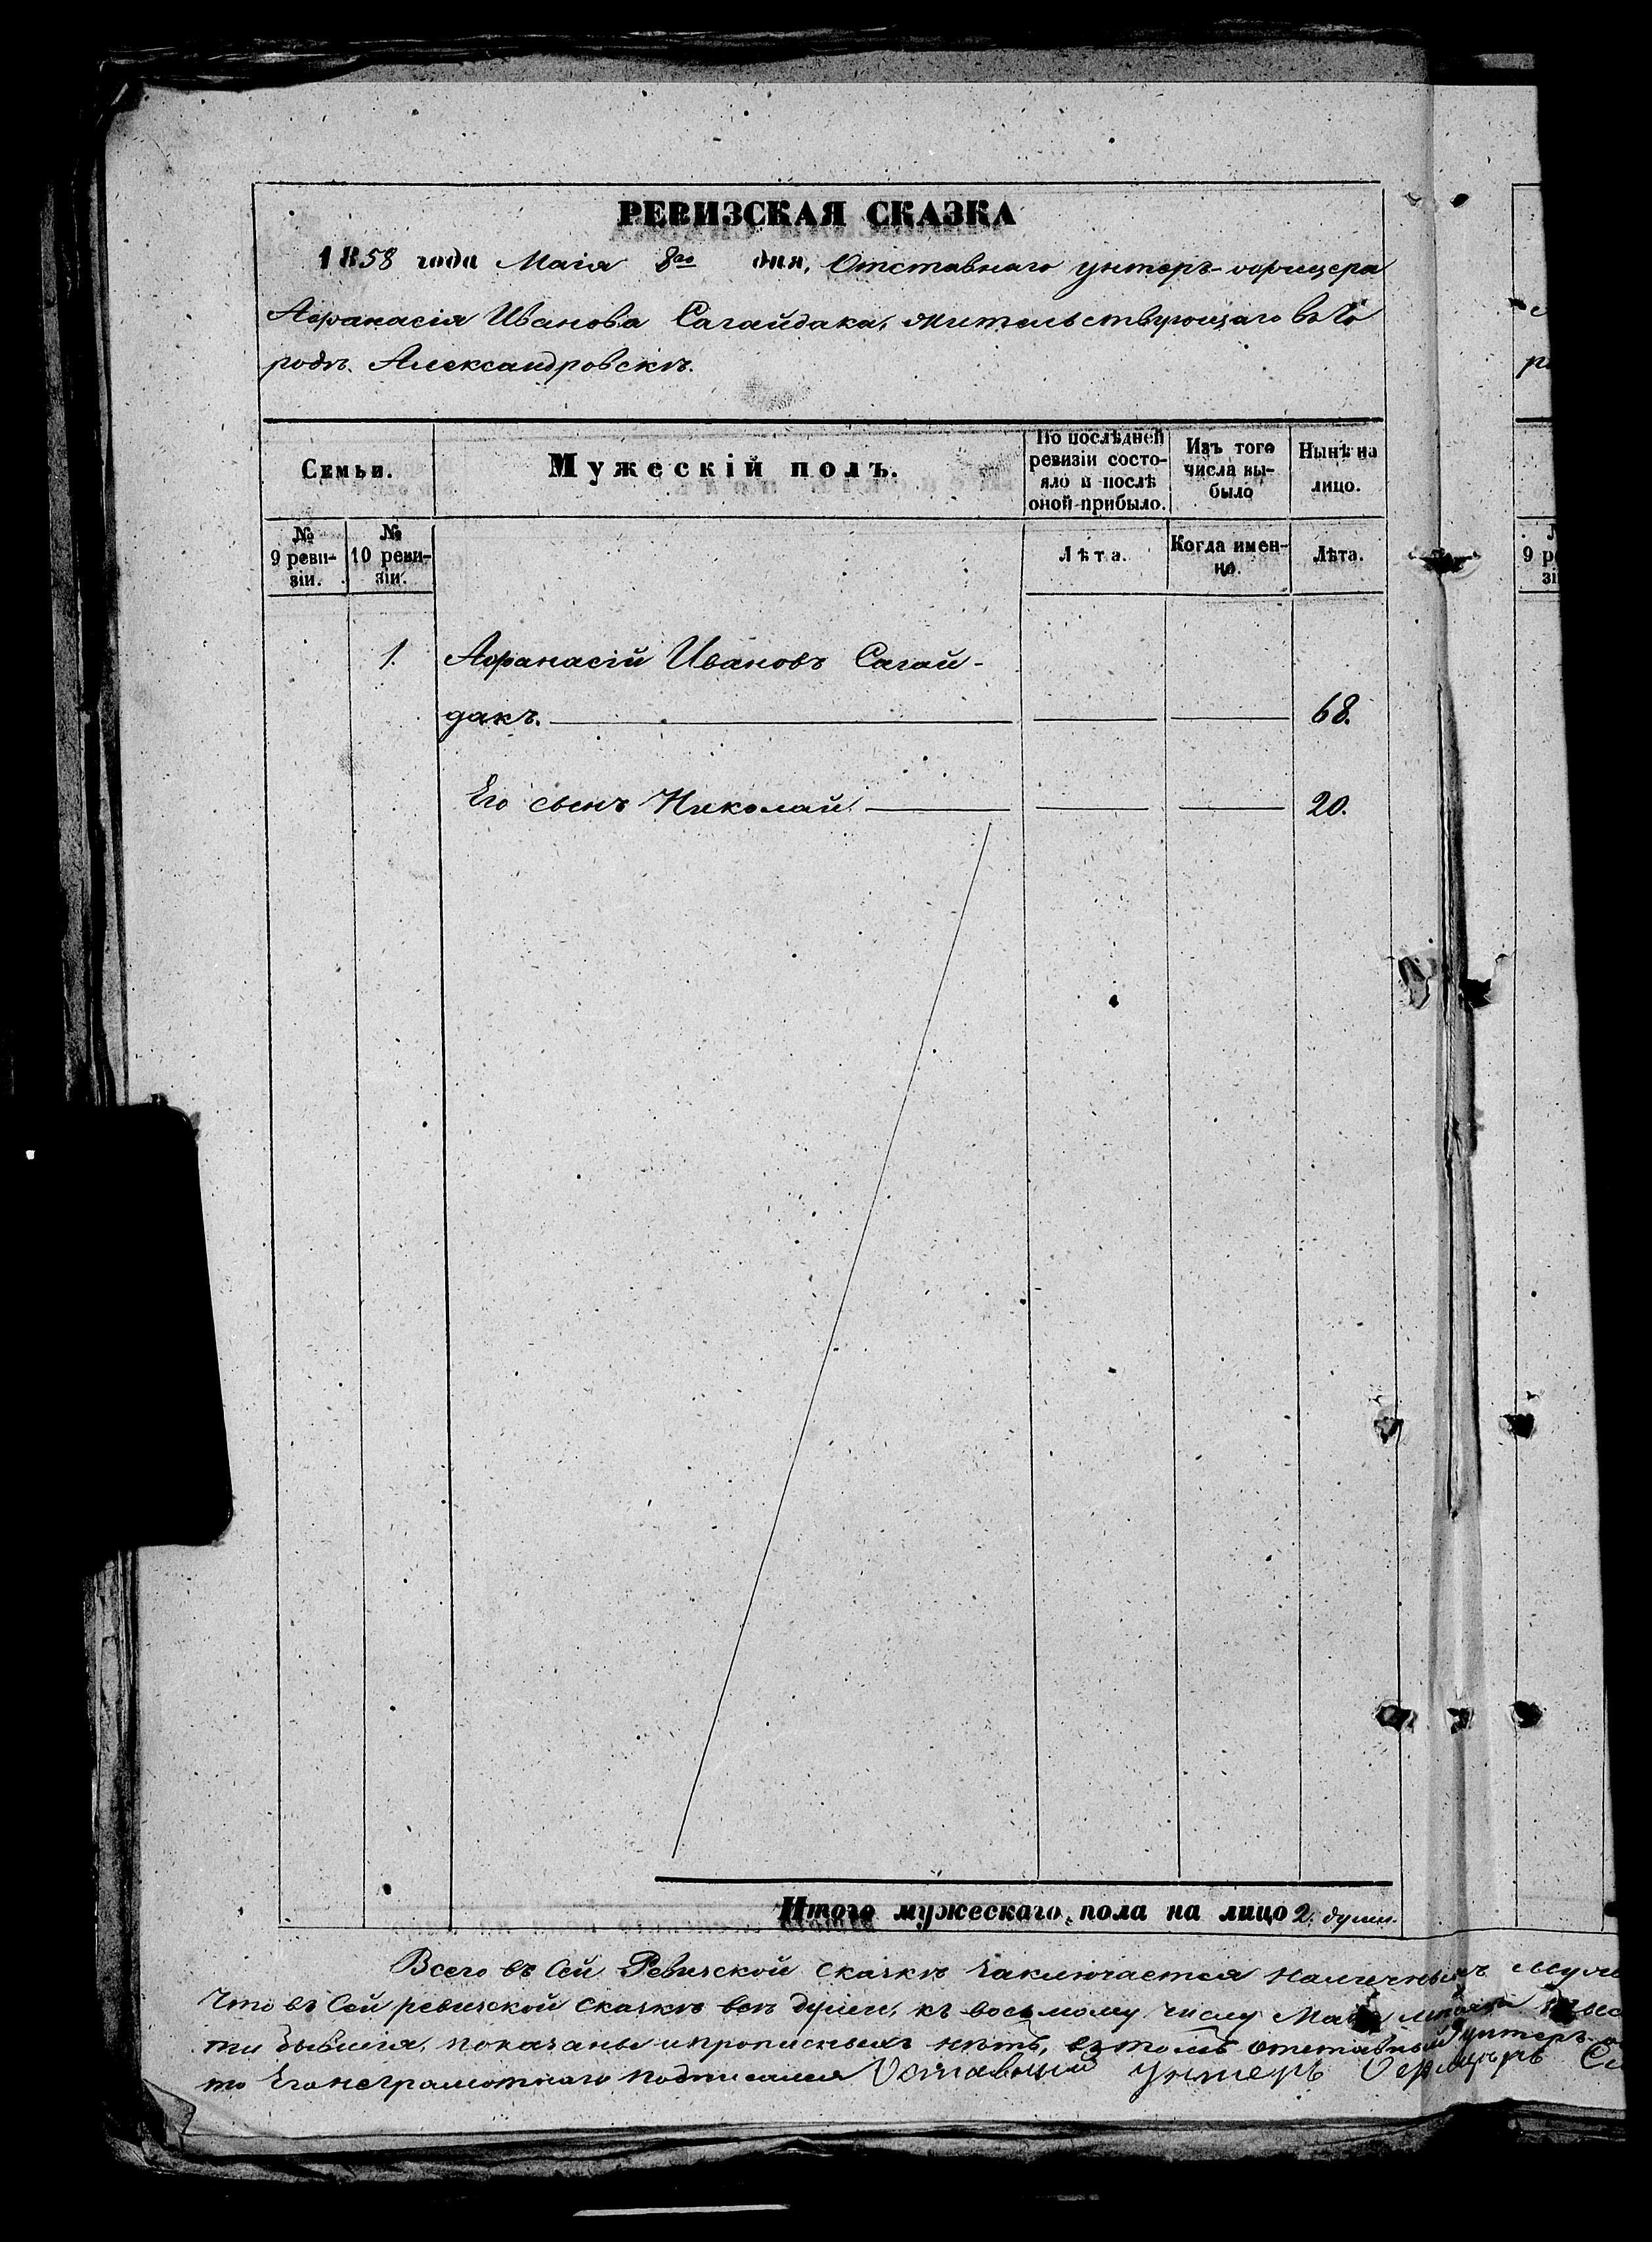 РЕВИЗСКАЯ СКАЗКА
1858 года Маія 8го дня, Отставнаго унтеръ-офицера
Афанасія Иванова Сагайдака, жительствующаго въ Го
родѣ Александровскѣ.
Семьи.
Мужескій полъ.
По послѣдней
ревизіи состо-
яло и послѣ
оной прибыло.
Изъ того
числа вы-
было
Нынѣ на
лицо.
№
9 реви-
зіи.
№
10 реви-
зіи.
Лѣта.
Когда имен-
но.
Лѣта.
№
9 ре
зі
1. Афанасій Ивановъ Сагай-
дакъ. 68.
Его сынъ Николай 20.
Итого мужескаго пола на лицо 2. души.
Всего въ Сей Ревизской сказкѣ заключается наличныхъ муж
Что въ Сей ревизской сказкѣ всѣ души, къ восьмому числу Маія
ти бывшія, показаны и прописныхъ нѣтъ, въ томъ отставный Унтеръ-о
то Его неграмотнаго подписался Отставный унтеръ Офицеръ Са